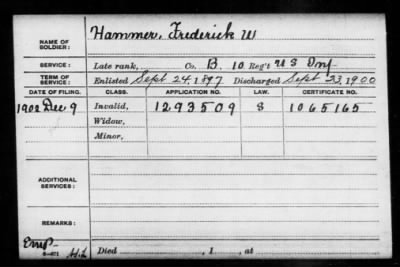 NAME OF SOLDIER: Hammer, Frederick W
SERVICE: Late rank, Co. B. 10 Reg't U S Inf.
TERM OF SERVICE: Enlisted Sept 24, 1897 Discharged Sept 23, 1900
DATE OF FILING. CLASS. APPLICATION NO. LAW. CERTIFICATE NO.
1902 Dec 9 Invalid, 1293509 S 1065165
Widow,
Minor,
ADDITIONAL SERVICES:
REMARKS:
Died , 1 , at